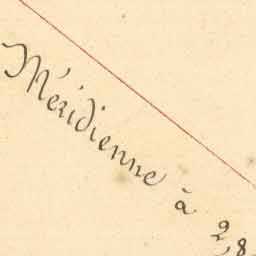 Méridienne à 2,8